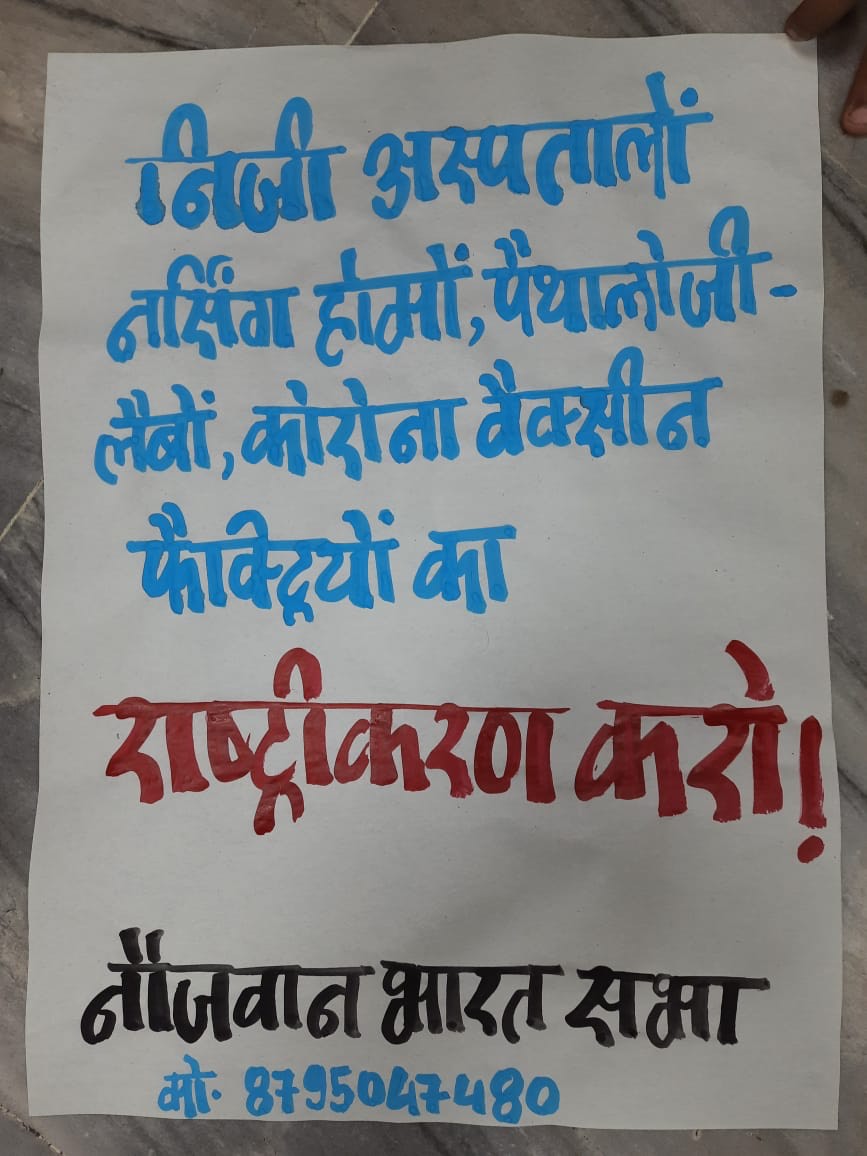 निजी अस्पतालों
नर्सिंग होमों, पैथालोजी-
लैबों, कोरोना वैक्सीन
फैक्ट्रियों का
राष्ट्रीकरण करो!
नौजवान भारत सभा
मो. 8795047480